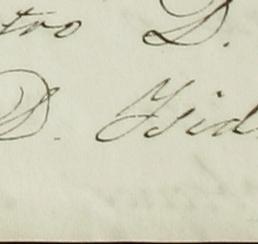 tro D.
D. Ysid